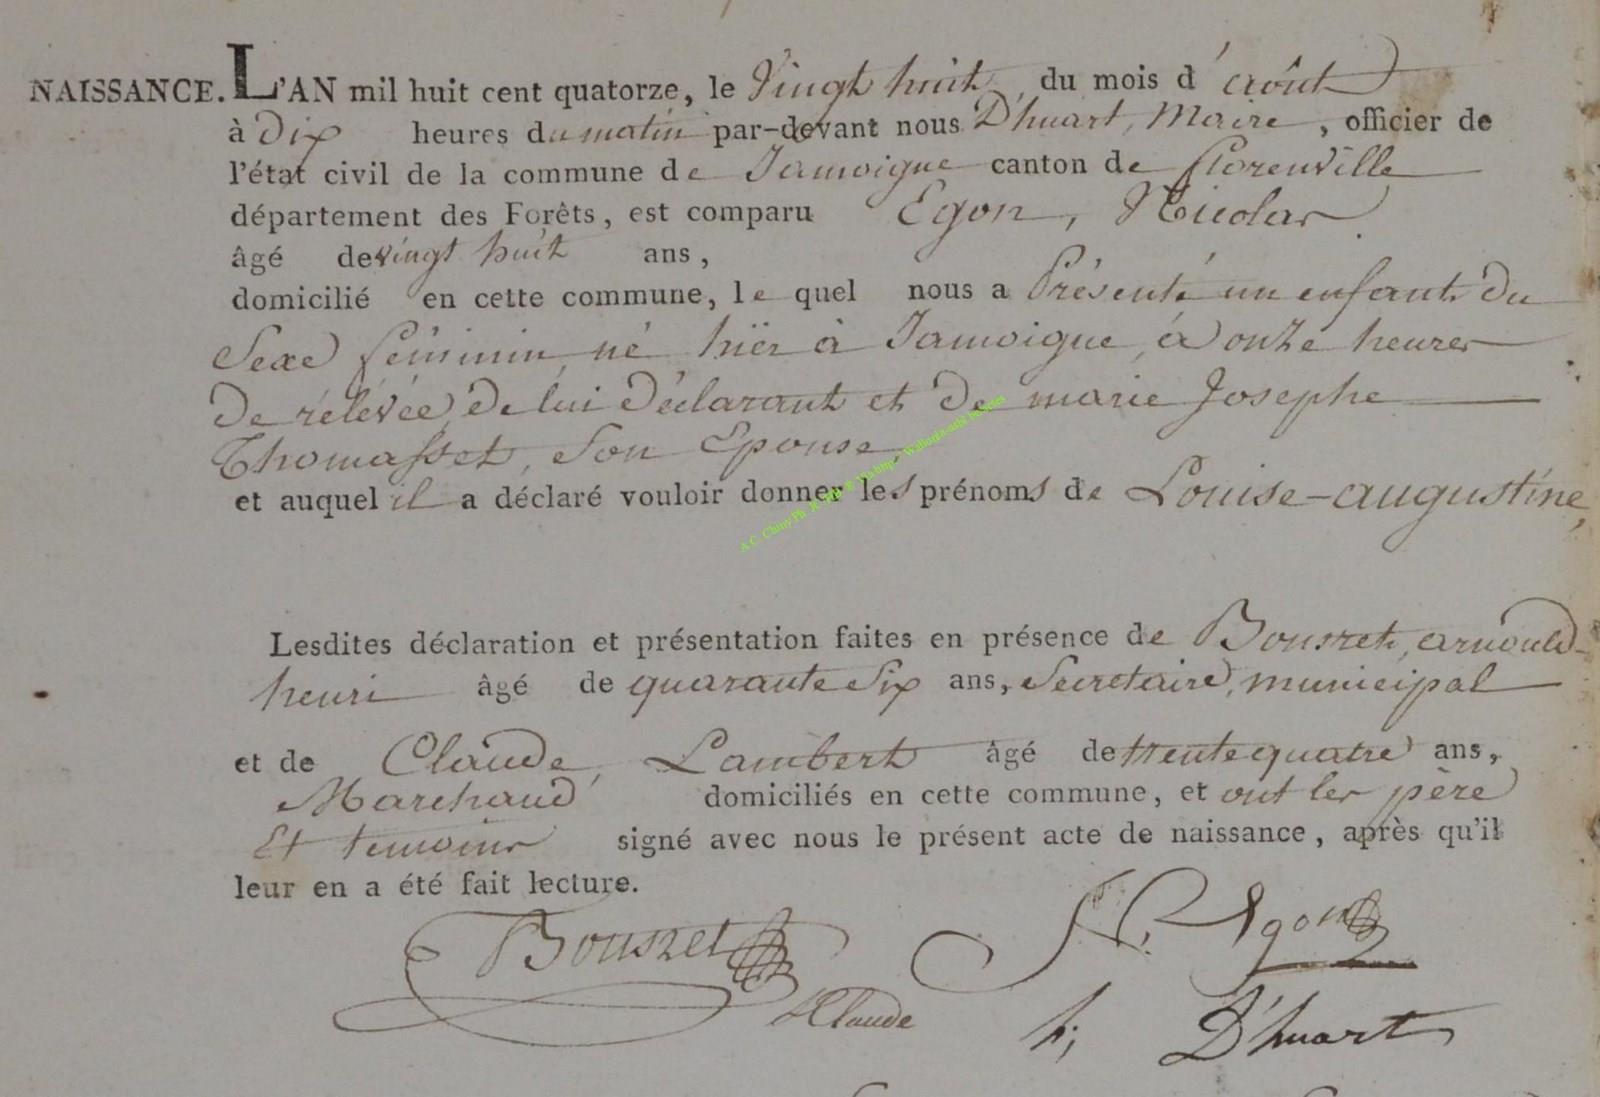 NAISSANCE. L'AN mil huit cent quatorze, le Vingt huit du mois d'août
à Dix heures du matin par-devant nous D'huart, Maire, officier de
l'état civil de la commune de Jamoigne canton de florenville
département des Forêts, est comparu Egon, Nicolas.
âgé de vingt huit ans,
domicilié en cette commune, le quel nous a Présenté un enfant du
Sexe féminin, né hier à Jamoigne, à onze heures
De rélévée, de lui Déclarant et de marie Josephe
Thomasset, son Epouse,
et auquel il a déclaré vouloir donner les prénoms de Louise-augustine,
Lesdites déclaration et présentation faites en présence de Bousret, arnould-
henri âgé de quarante Six ans, Secretaire, municipal
et de Claude, Lambert âgé de trente quatre ans,
Marchand domiciliés en cette commune, et ont les père
Et temoins signé avec nous le présent acte de naissance, après qu'il
leur en a été fait lecture.
Bousret N. Egon
LClaude h; D'huart